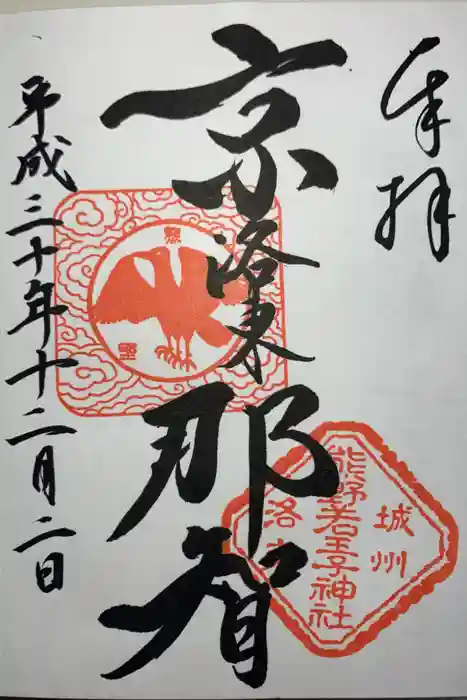 奉拝
京洛東那智
平成三十年十二月二日
熊野
城州
熊野若王子神社
洛